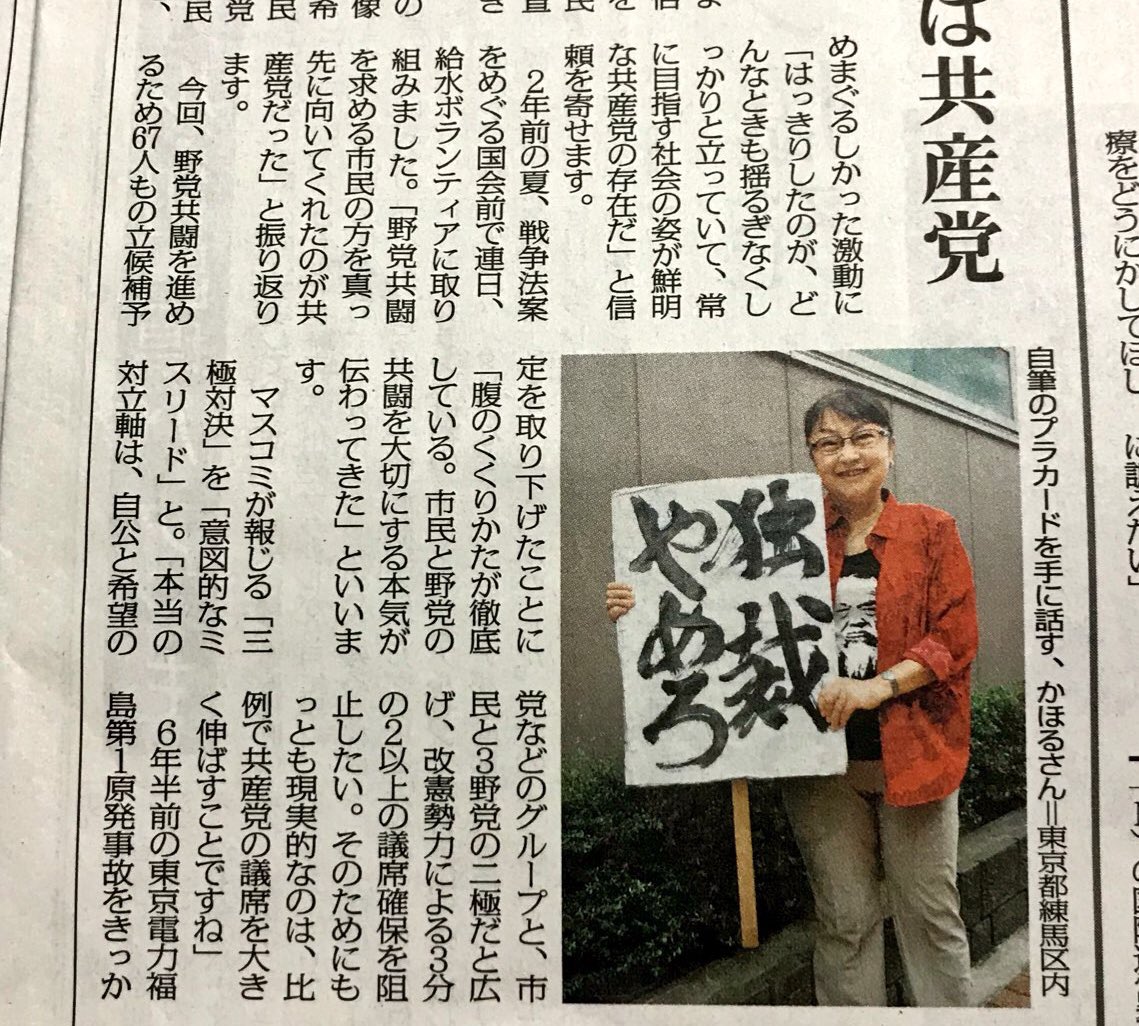 は共産党
めまぐるしかった激動に
「はっきりしたのが、ど
んなときも揺るぎなくし
っかりと立っていて、常
に目指す社会の姿が鮮明
な共産党の存在だ」と信
頼を寄せます。
２年前の夏、戦争法案
をめぐる国会前で連日、
給水ボランティアに取り
組みました。「野党共闘
を求める市民の方を真っ
先に向いてくれたのが共
産党だった」と振り返り
ます。
今回、野党共闘を進め
るため67人もの立候補予
定を取り下げたことに
「腹のくくりかたが徹底
している。市民と野党の
共闘を大切にする本気が
伝わってきた」といいま
す。
マスコミが報じる「三
極対決」を「意図的なミ
スリード」と。「本当の
対立軸は、自公と希望の
党などのグループと、市
民と３野党の二極だと広
げ、改憲勢力による３分
の２以上の議席確保を阻
止したい。そのためにも
っとも現実的なのは、比
例で共産党の議席を大き
く伸ばすことですね」
６年半前の東京電力福
島第１原発事故をきっか
自筆のプラカードを手に話す、かほるさん＝東京都練馬区内
独裁
やめろ
療をどうにかしてほし